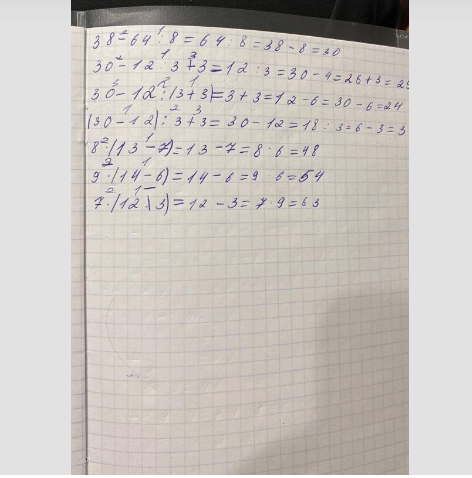 38-64:8=64:8=38-8=30
30-12:3+3=12:3=30-4=26+3=29
30-12:(3+3)=3+3=12-6=30-6=24
(30-12):3+3=30-12=18:3=6-3=3
8·(13-7)=13-7=8·6=48
9·(14-6)=14-6=9 6=54
7·(12\3)=12-3=7·9=63